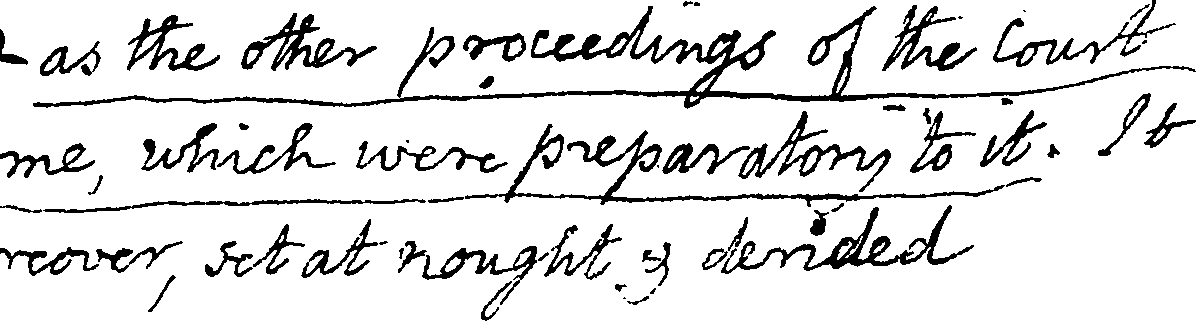 as the other proceedings of the Court
me, which were preparatory to it. It
reover, set at nought & derided